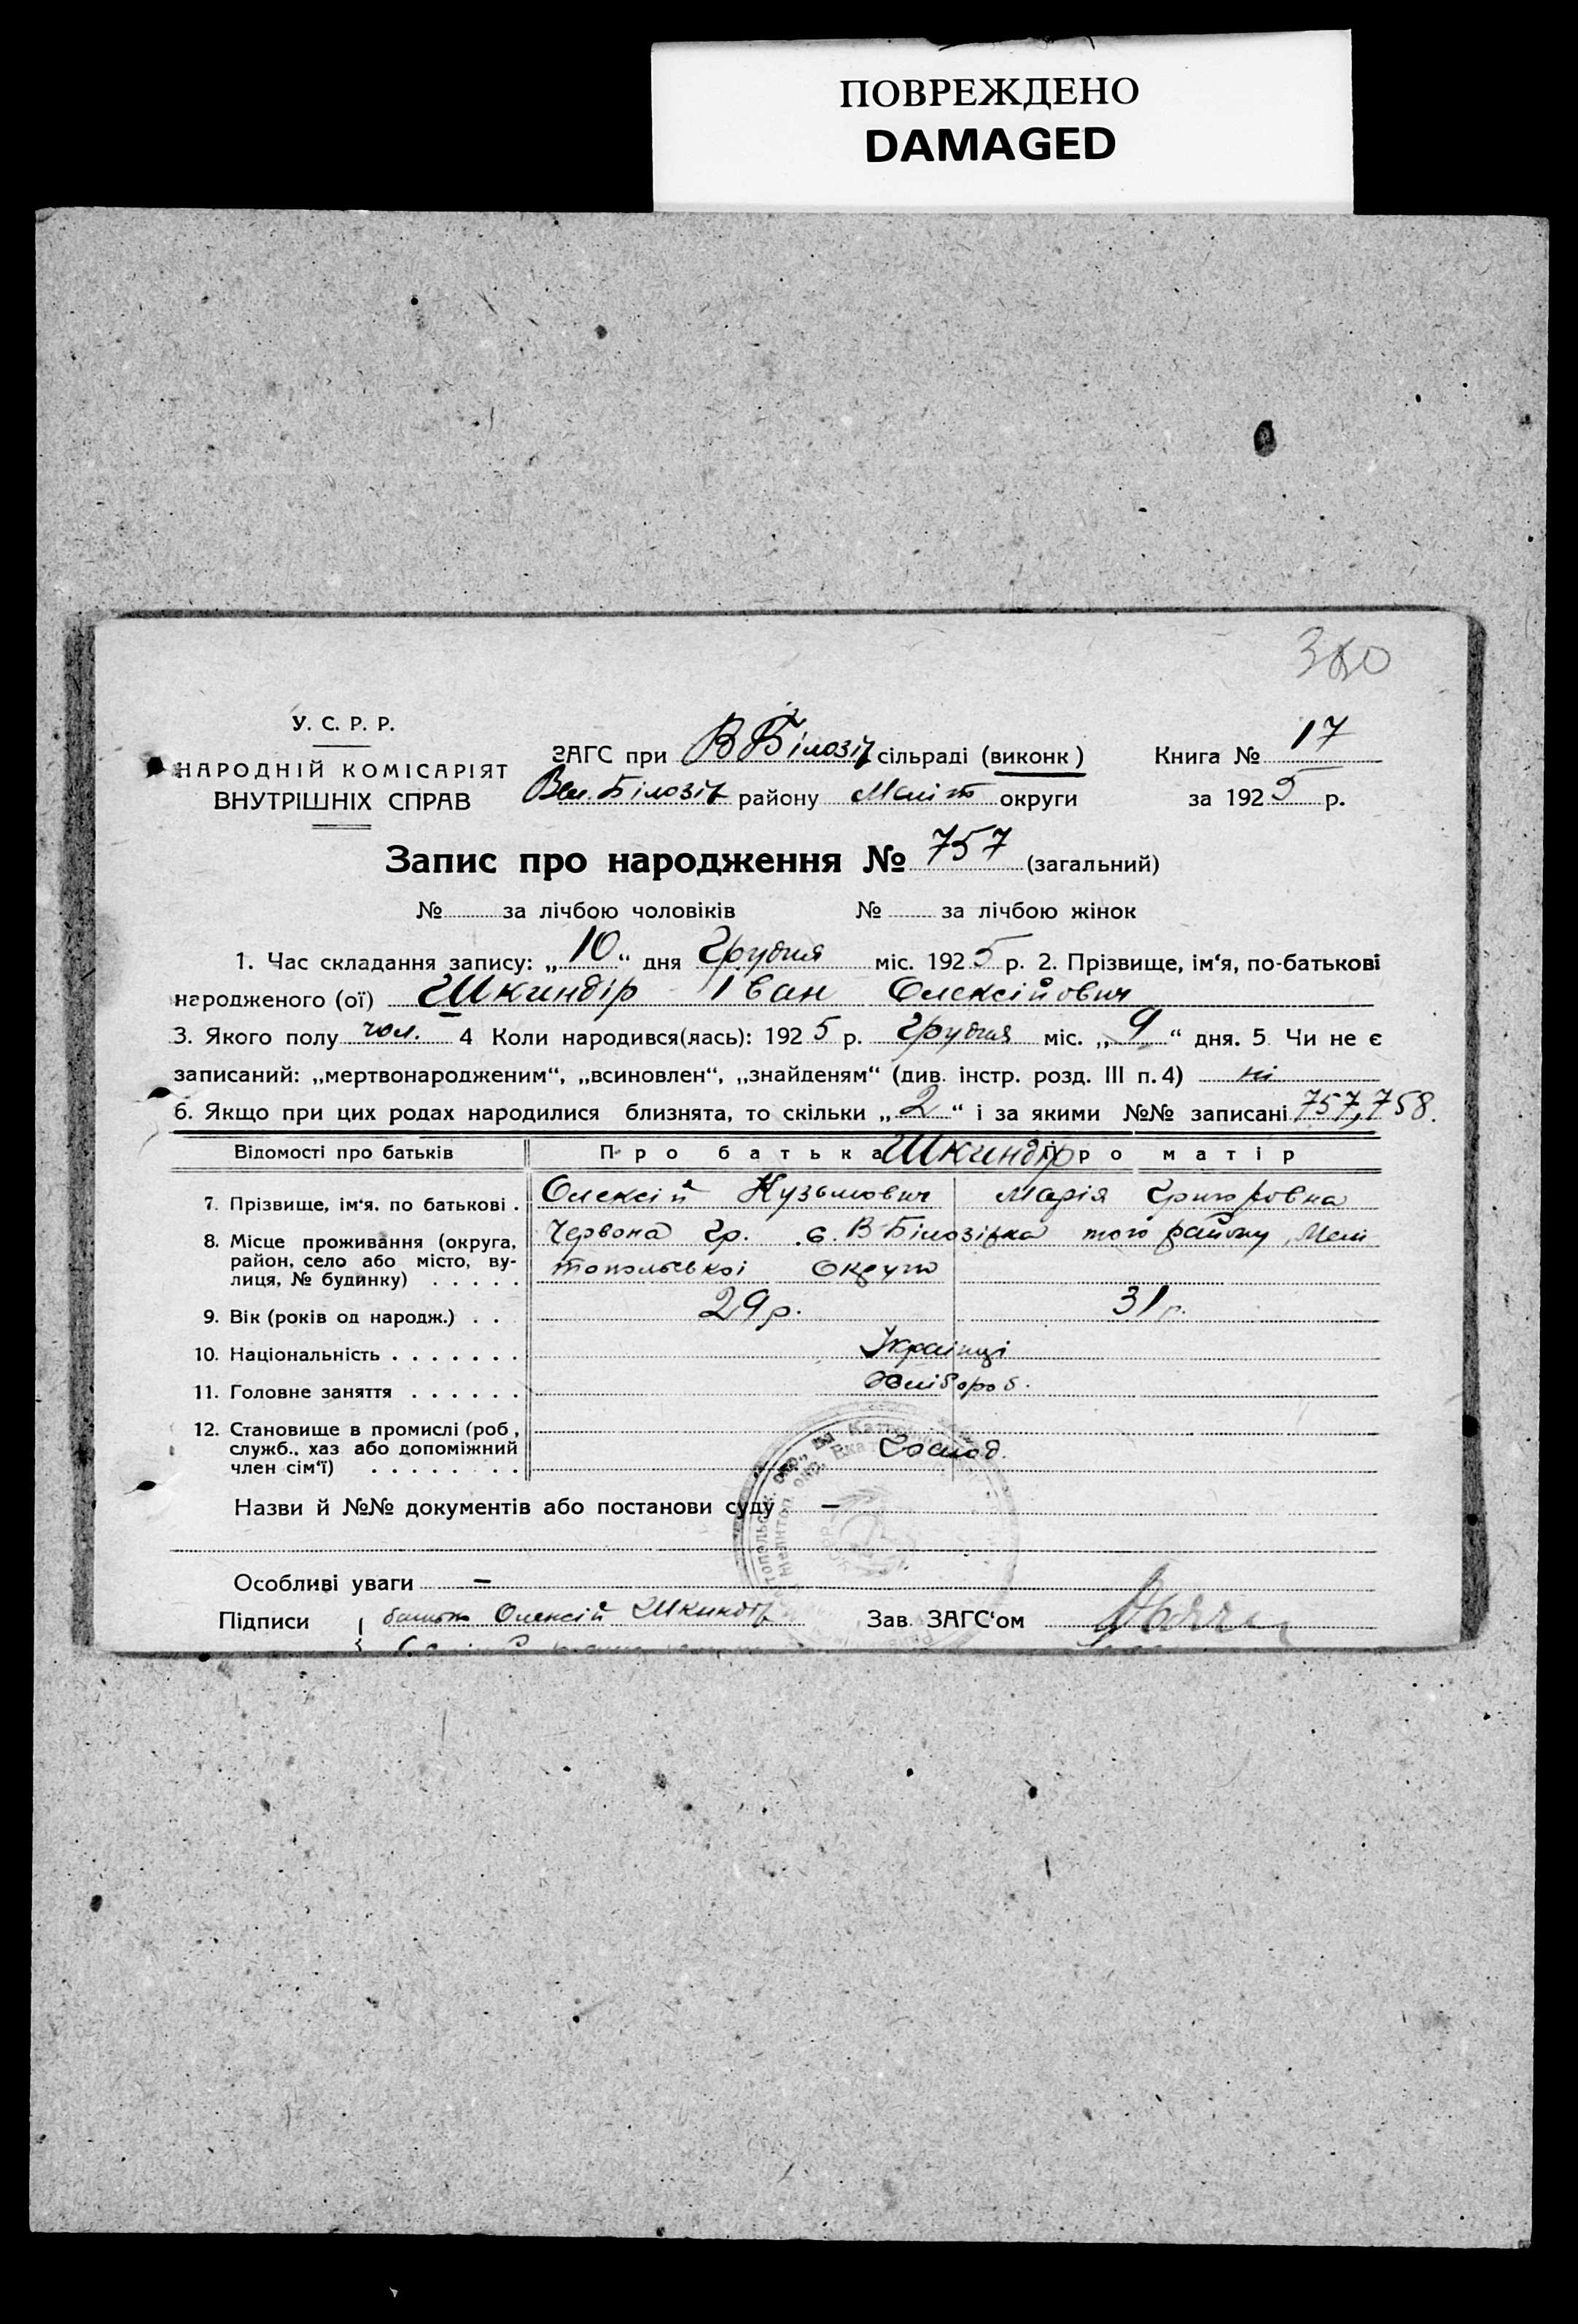 ПОВРЕЖДЕНО
DAMAGED
380
У. С. Р. Р.
НАРОДНІЙ КОМІСАРІЯТ
ВНУТРІШНІХ СПРАВ
ЗАГС при В Білозір сільраді (виконк)
Книга № 17
Вел. Білозір району Меліт округи
за 1925 р.
Запис про народження № 757 (загальний)
№ за лічбою чоловіків № за лічбою жінок
1. Час складання запису: „10“ дня Грудня міс. 1925 р. 2. Прізвище, ім'я, по-батькові
народженого (ої) Шкиндір Іван Олексійович
3. Якого полу чол. 4 Коли народився(лась): 1925 р. Грудня міс. „9“ дня. 5. Чи не є
записаний: „мертвонародженим“, „всиновлен“, „знайденям“ (див. інстр. розд. III п. 4) ні
6. Якщо при цих родах народилися близнята, то скільки „2“ і за якими №№ записані 757, 758.
Відомості про батьків Про батька Шкиндір Про матір
7. Прізвище, ім'я, по батькові . Олексій Кузьмович Марія Григоровна
8. Місце проживання (округа, район, село або місто, вулиця, № будинку) . . . . . Червона гр. с. В Білозірка того району, Мелітопольської Округи
9. Вік (років од народж.) . . 29 р. 31 р.
10. Національність . . . . . . . Українці
11. Головне заняття . . . . . . Хлібороб.
12. Становище в промислі (роб., служб., хаз або допоміжний член сім'ї) . . . . . . . . Господ.
Назви й №№ документів або постанови суду —
Особливі уваги —
Підписи { батько Олексій Шкиндір Зав. ЗАГС'ом